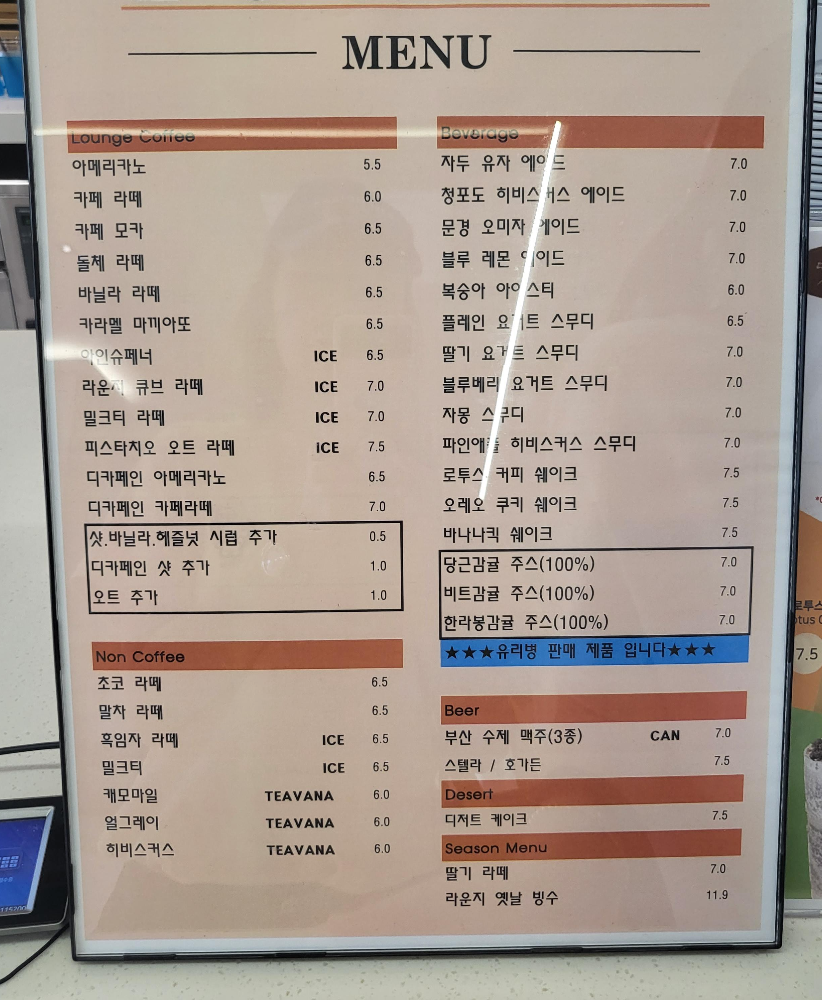 MENU
Lounge Coffee
아메리카노 5.5
카페 라떼 6.0
카페 모카 6.5
돌체 라떼 6.5
바닐라 라떼 6.5
카라멜 마끼아또 6.5
아인슈페너 ICE 6.5
라운지 큐브 라떼 ICE 7.0
밀크티 라떼 ICE 7.0
피스타치오 오트 라떼 ICE 7.5
디카페인 아메리카노 6.5
디카페인 카페라떼 7.0
샷.바닐라.헤즐넛 시럽 추가 0.5
디카페인 샷 추가 1.0
오트 추가 1.0
Non Coffee
초코 라떼 6.5
말차 라떼 6.5
흑임자 라떼 ICE 6.5
밀크티 ICE 6.5
캐모마일 TEAVANA 6.0
얼그레이 TEAVANA 6.0
히비스커스 TEAVANA 6.0
Beverage
자두 유자 에이드 7.0
청포도 히비스커스 에이드 7.0
문경 오미자 에이드 7.0
블루 레몬 에이드 7.0
복숭아 아이스티 6.0
플레인 요거트 스무디 6.5
딸기 요거트 스무디 7.0
블루베리 요거트 스무디 7.0
자몽 스무디 7.0
파인애플 히비스커스 스무디 7.0
로투스 커피 쉐이크 7.5
오레오 쿠키 쉐이크 7.5
바나나킥 쉐이크 7.5
당근감귤 주스(100%) 7.0
비트감귤 주스(100%) 7.0
한라봉감귤 주스(100%) 7.0
★★★유리병 판매 제품 입니다★★★
Beer
부산 수제 맥주(3종) CAN 7.0
스텔라 / 호가든 7.5
Desert
디저트 케이크 7.5
Season Menu
딸기 라떼 7.0
라운지 옛날 빙수 11.9
로투스
7.5